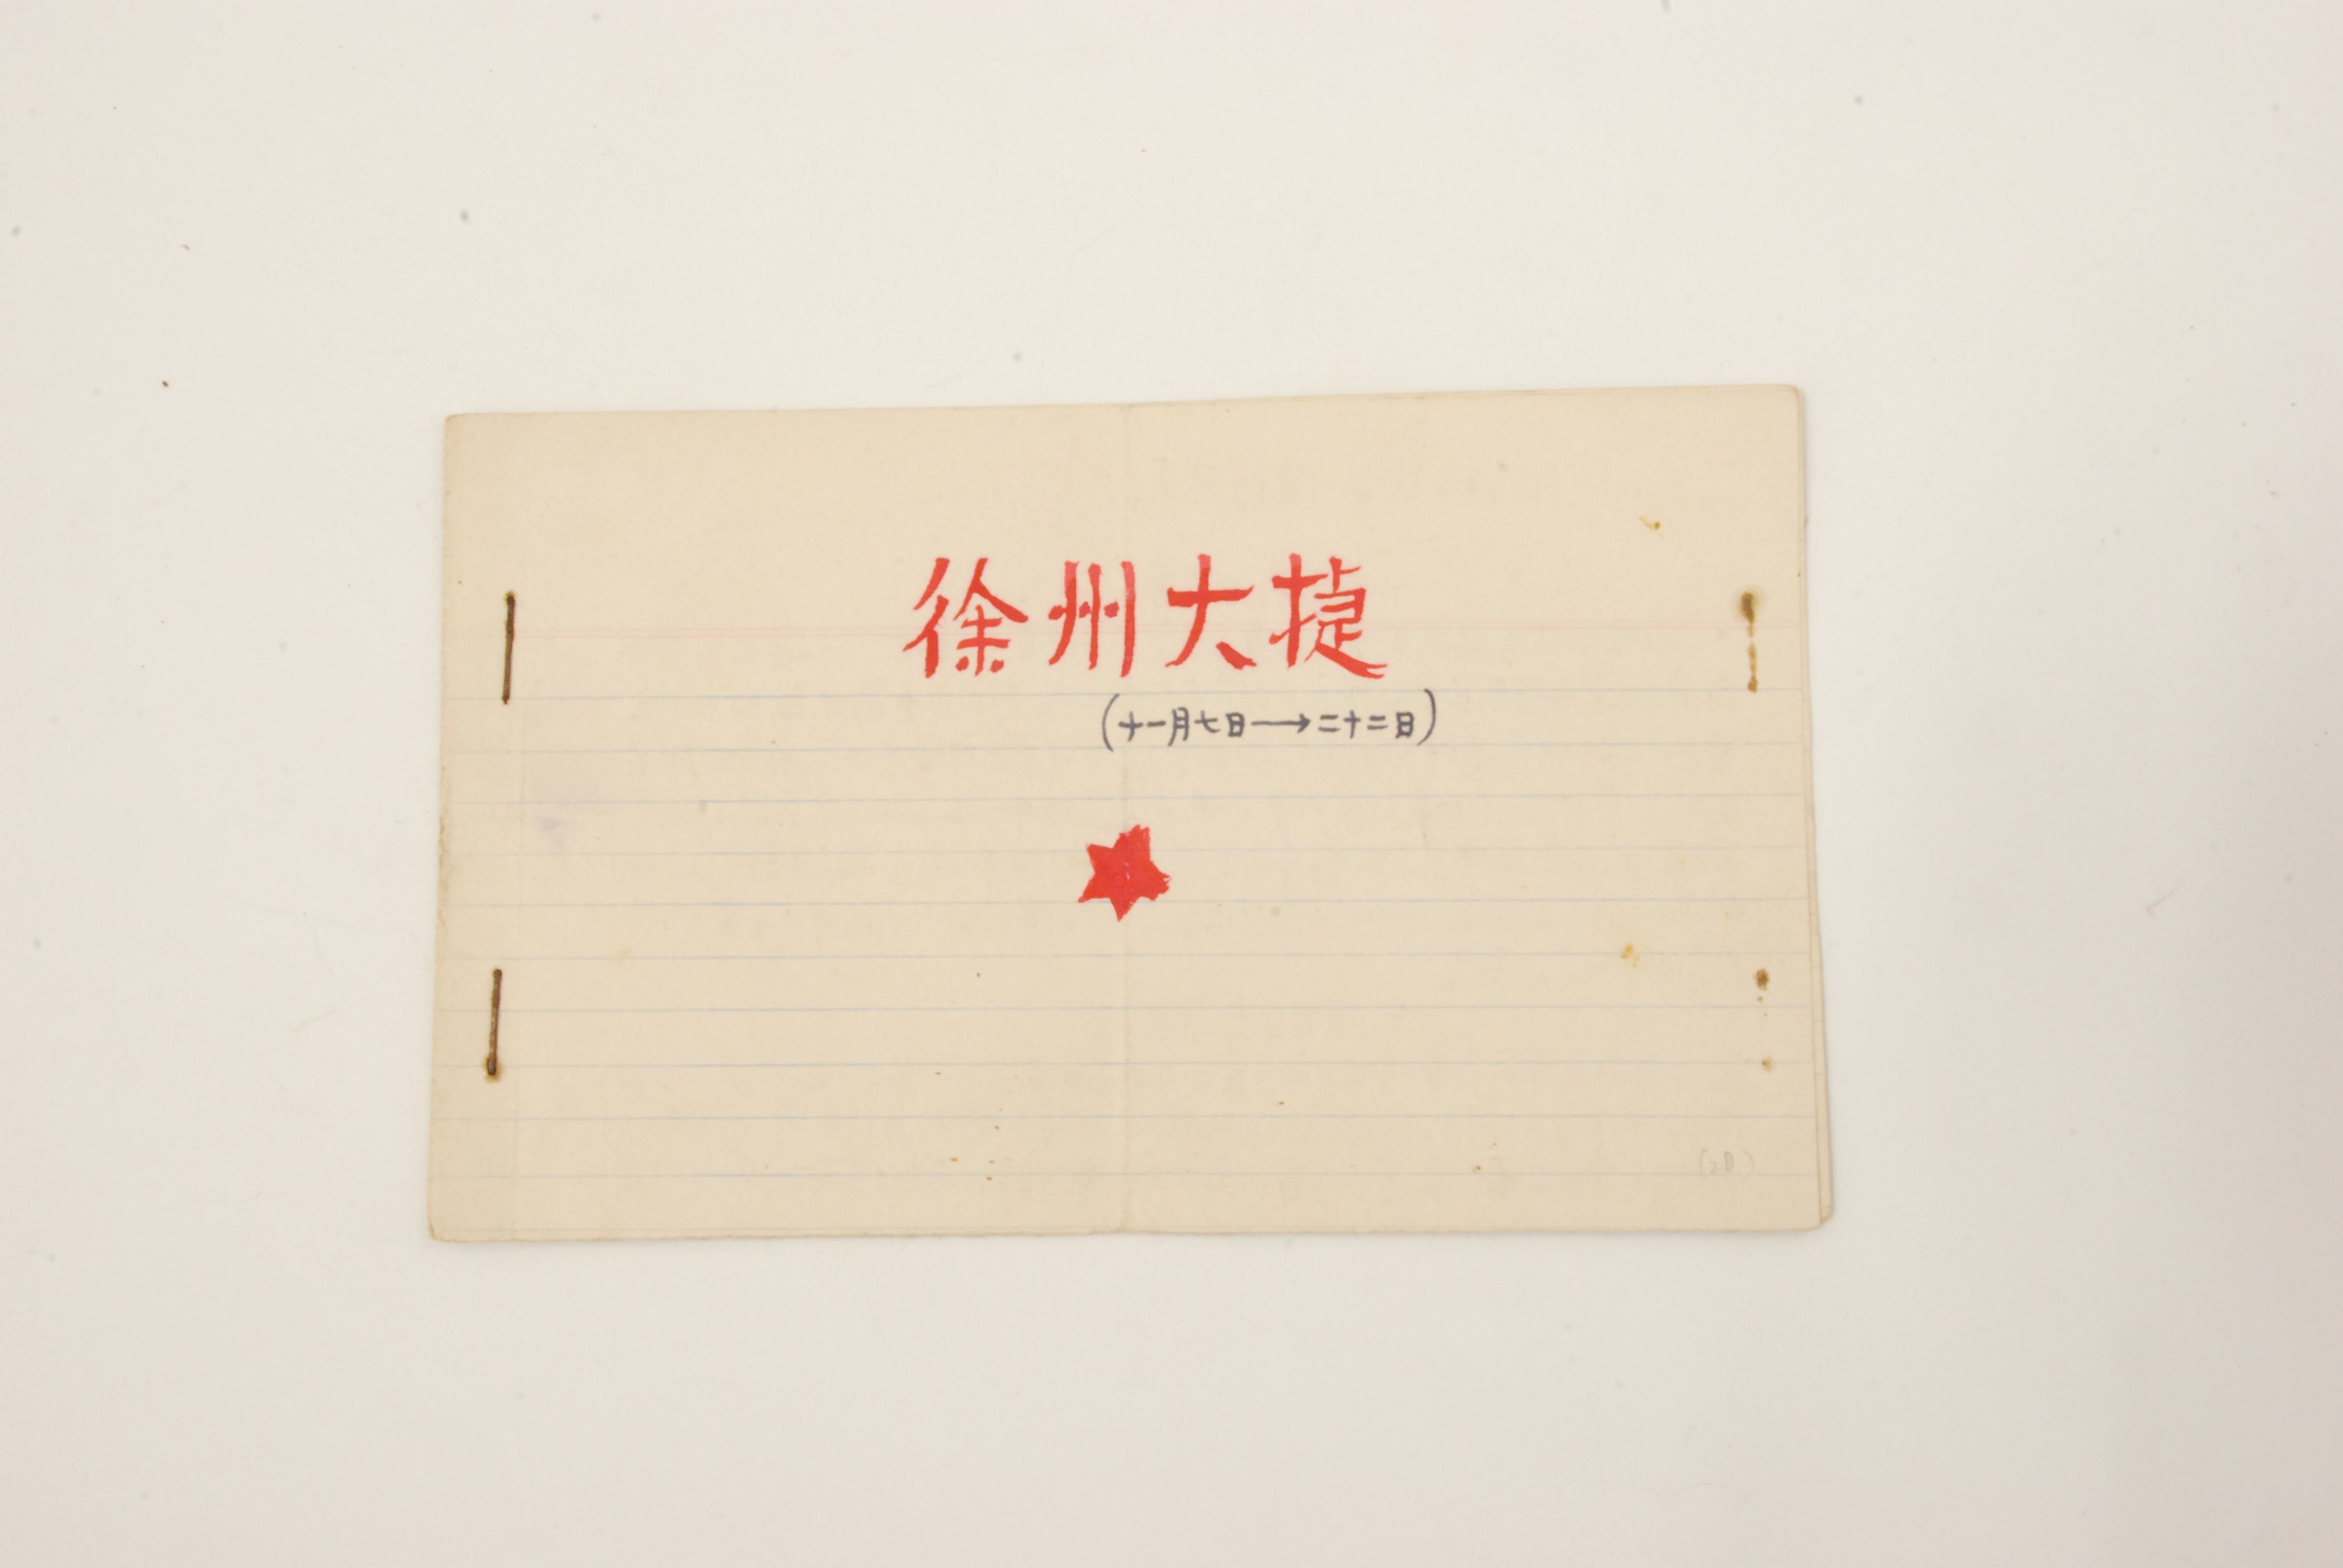 徐州大捷
(十一月七日→二十二日)